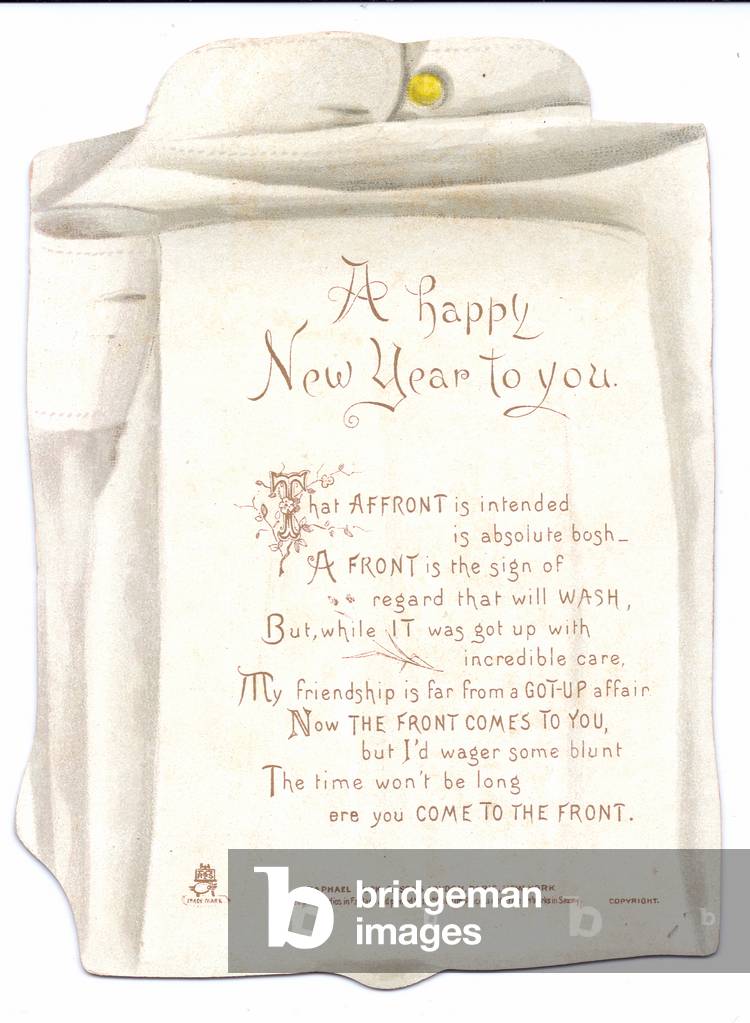 A happy
New Year to you.
That AFFRONT is intended
is absolute bosh—
A FRONT is the sign of
regard that will WASH,
But, while IT was got up with
incredible care,
My friendship is far from a GOT-UP affair
Now THE FRONT COMES TO YOU,
but I'd wager some blunt
The time won't be long
ere you COME TO THE FRONT.
TRADE MARK
COPYRIGHT.
b bridgeman
images